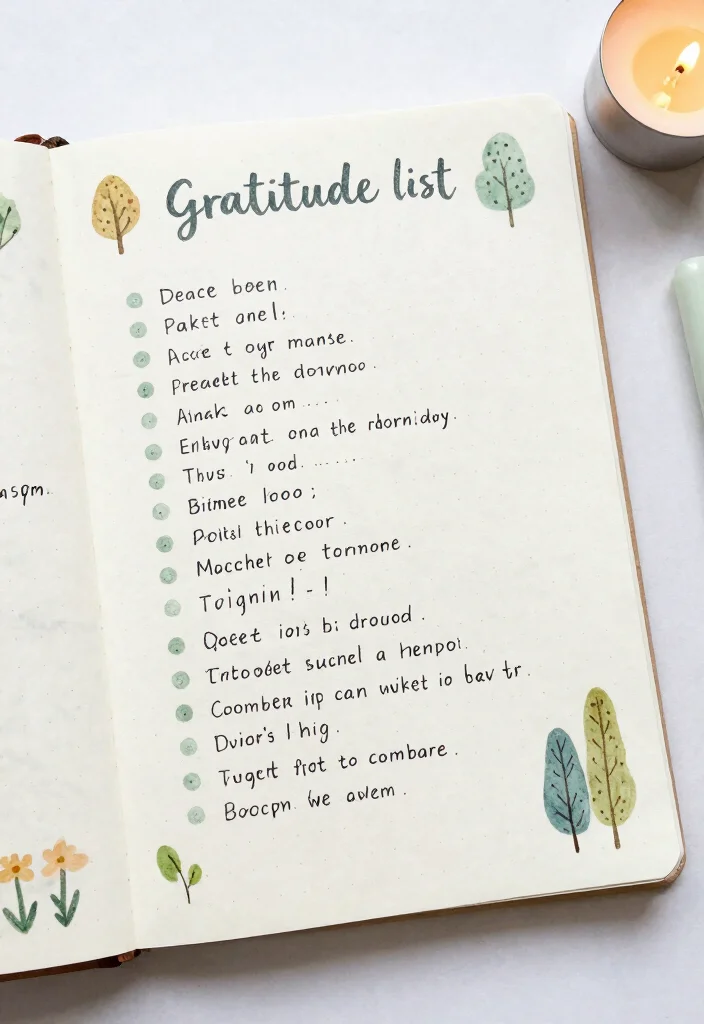 Gratitude list
Deace boen.
Paket onel:
Acce t oyr manse.
Preaebt the dorvnoo.
Ainak ao om ....
Enbvg aat. ona the rdorniday.
Thus. 'i ood. ......
Bitmee looo ;
Poitsl thiecoor.
Mocchet oe tornone.
Toignin! - !
Qoeet iois bi drouod.
Tntoobet sucnel a henpoi.
Coomber iip can wuket io bav tr.
Dvior's I hig.
Tugert fiot to combare.
Boocpn. We avlem.